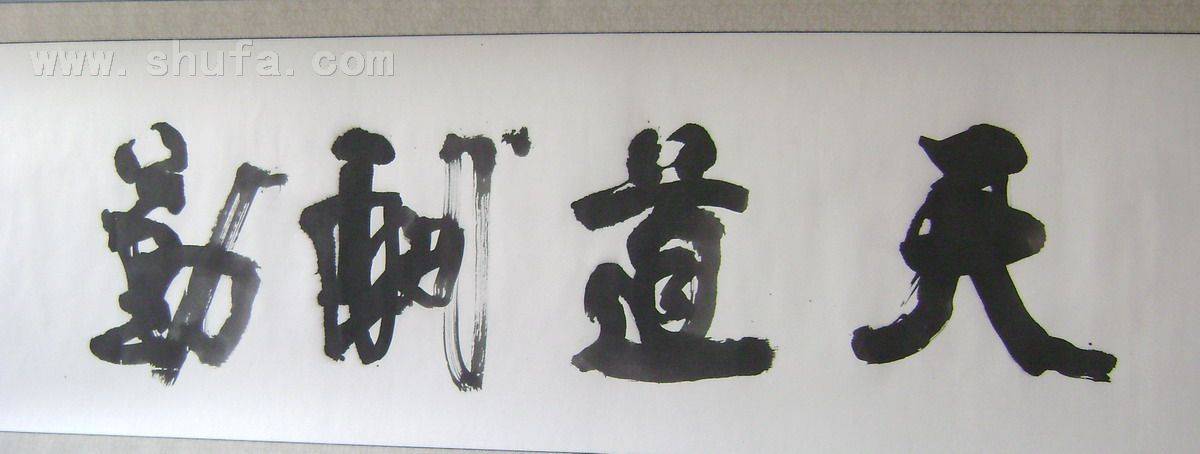 www.shufa.com
天道酬勤